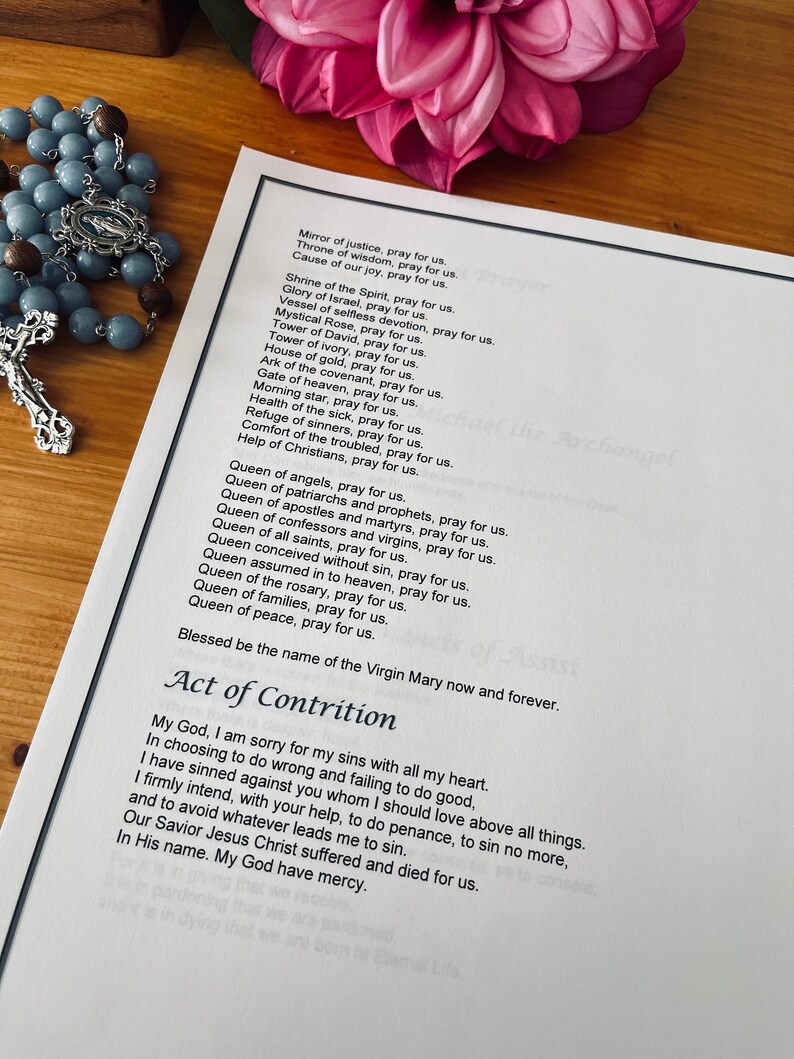 Mirror of justice, pray for us.
Throne of wisdom, pray for us.
Cause of our joy, pray for us.
Shrine of the Spirit, pray for us.
Glory of Israel, pray for us.
Vessel of selfless devotion, pray for us.
Mystical Rose, pray for us.
Tower of David, pray for us.
Tower of ivory, pray for us.
House of gold, pray for us.
Ark of the covenant, pray for us.
Gate of heaven, pray for us.
Morning star, pray for us.
Health of the sick, pray for us.
Refuge of sinners, pray for us.
Comfort of the troubled, pray for us.
Help of Christians, pray for us.
Queen of angels, pray for us.
Queen of patriarchs and prophets, pray for us.
Queen of apostles and martyrs, pray for us.
Queen of confessors and virgins, pray for us.
Queen of all saints, pray for us.
Queen conceived without sin, pray for us.
Queen assumed in to heaven, pray for us.
Queen of the rosary, pray for us.
Queen of families, pray for us.
Queen of peace, pray for us.
Blessed be the name of the Virgin Mary now and forever.
Act of Contrition
My God, I am sorry for my sins with all my heart.
In choosing to do wrong and failing to do good,
I have sinned against you whom I should love above all things.
I firmly intend, with your help, to do penance, to sin no more,
and to avoid whatever leads me to sin.
Our Savior Jesus Christ suffered and died for us.
In His name. My God have mercy.
Prayer
Michael the Archangel
of Assisi
as to console,
For it is in giving that we receive.
It is in pardoning that we are pardoned,
and it is in dying that we are born to Eternal Life.